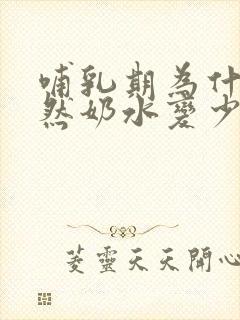 哺乳期為什
然奶水變少
菱靈天天開心